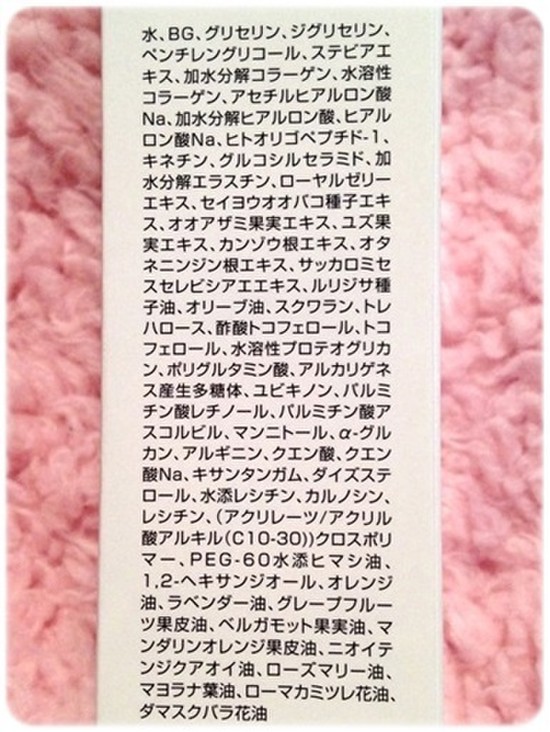 水、BG、グリセリン、ジグリセリン、
ペンチレングリコール、ステビアエ
キス、加水分解コラーゲン、水溶性
コラーゲン、アセチルヒアルロン酸
Na、加水分解ヒアルロン酸、ヒアル
ロン酸Na、ヒトオリゴペプチド-1、
キネチン、グルコシルセラミド、加
水分解エラスチン、ローヤルゼリー
エキス、セイヨウオオバコ種子エキ
ス、オオアザミ果実エキス、ユズ果
実エキス、カンゾウ根エキス、オタ
ネニンジン根エキス、サッカロミセ
スセレビシアエエキス、ルリジサ種
子油、オリーブ油、スクワラン、トレ
ハロース、酢酸トコフェロール、トコ
フェロール、水溶性プロテオグリカ
ン、ポリグルタミン酸、アルカリゲネ
ス産生多糖体、ユビキノン、パルミ
チン酸レチノール、パルミチン酸ア
スコルビル、マンニトール、α-グル
カン、アルギニン、クエン酸、クエン
酸Na、キサンタンガム、ダイズステ
ロール、水添レシチン、カルノシン、
レシチン、(アクリレーツ/アクリル
酸アルキル(C10-30))クロスポリ
マー、PEG-60水添ヒマシ油、
1,2-ヘキサンジオール、オレンジ
油、ラベンダー油、グレープフルー
ツ果皮油、ベルガモット果実油、マ
ンダリンオレンジ果皮油、ニオイテ
ンジクアオイ油、ローズマリー油、
マヨラナ葉油、ローマカミツレ花油、
ダマスクバラ花油